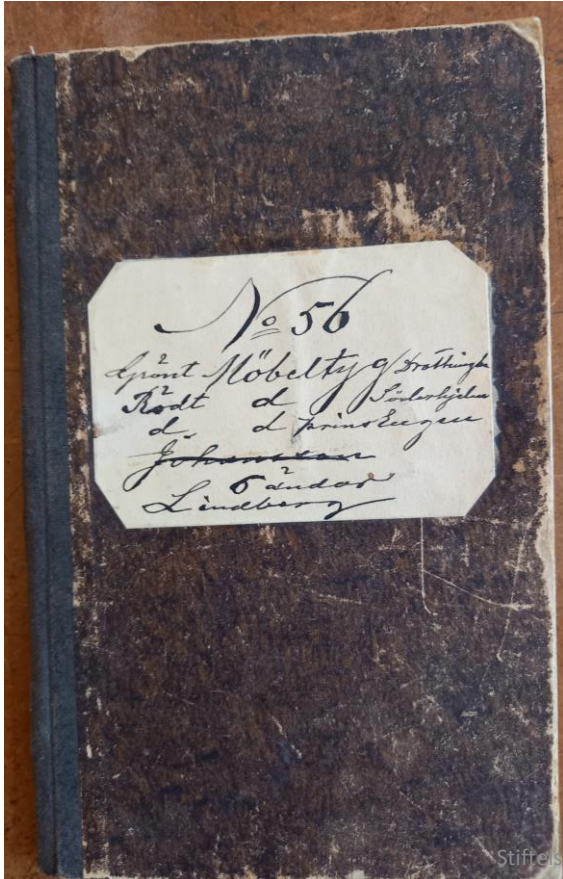 No 56
Grönt Möbeltyg Drottningh
Rödt d Söderhjelm
d d prins Eugen
Johansson
6 ändar
Lindberg
Stiftels